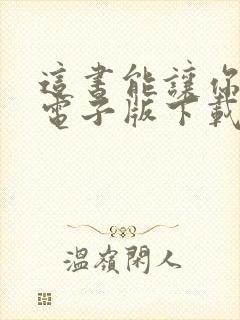 這書能讓你
電子版下載
溫嶺閑人